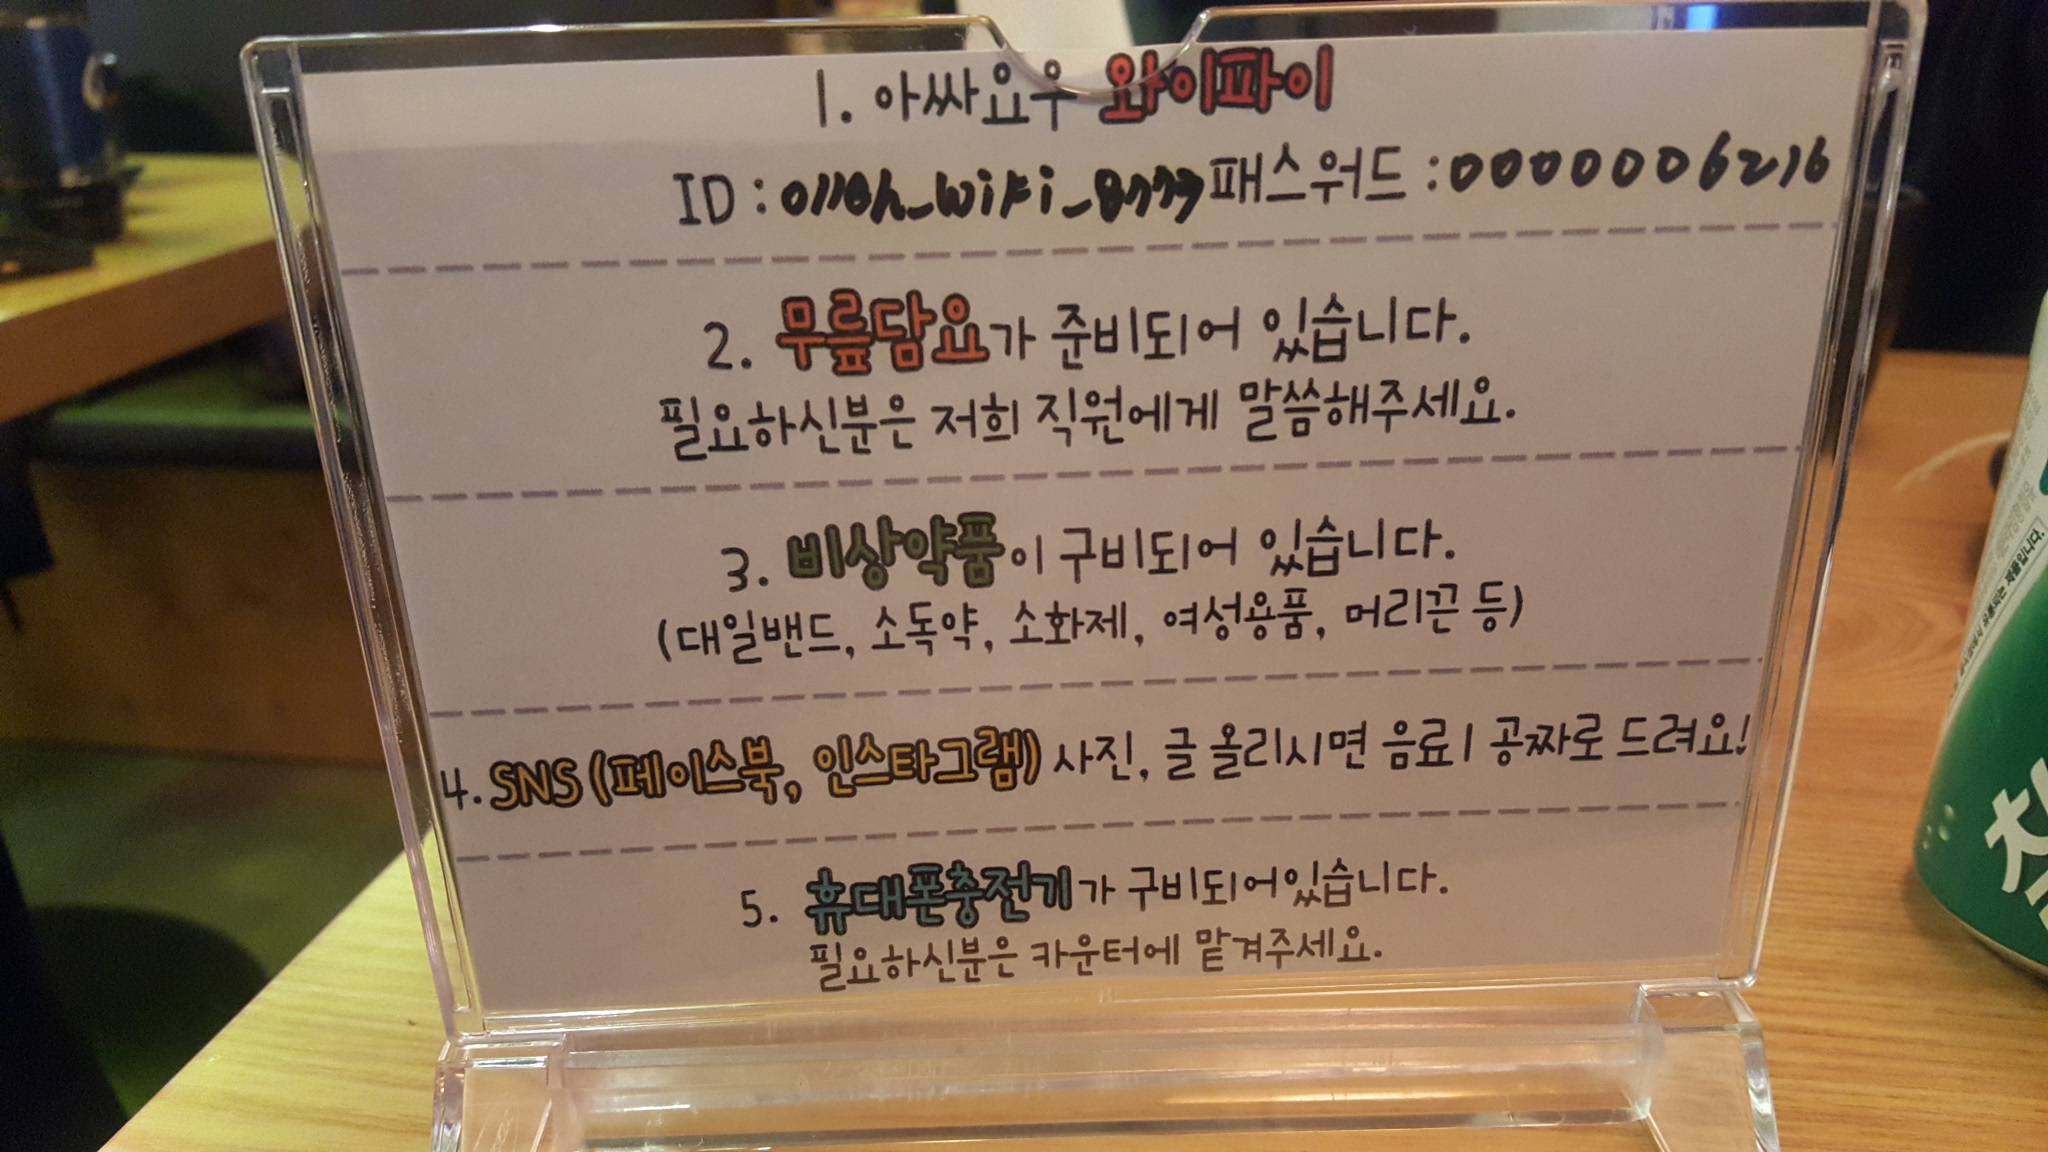 1. 아싸요우 와이파이
ID : olleh_WiFi_8777 패스워드 : 0000006216
2. 무릎담요가 준비되어 있습니다.
필요하신분은 저희 직원에게 말씀해주세요.
3. 비상약품이 구비되어 있습니다.
(대일밴드, 소독약, 소화제, 여성용품, 머리끈 등)
4. SNS (페이스북, 인스타그램) 사진, 글 올리시면 음료 1 공짜로 드려요!
5. 휴대폰충전기가 구비되어있습니다.
필요하신분은 카운터에 맡겨주세요.